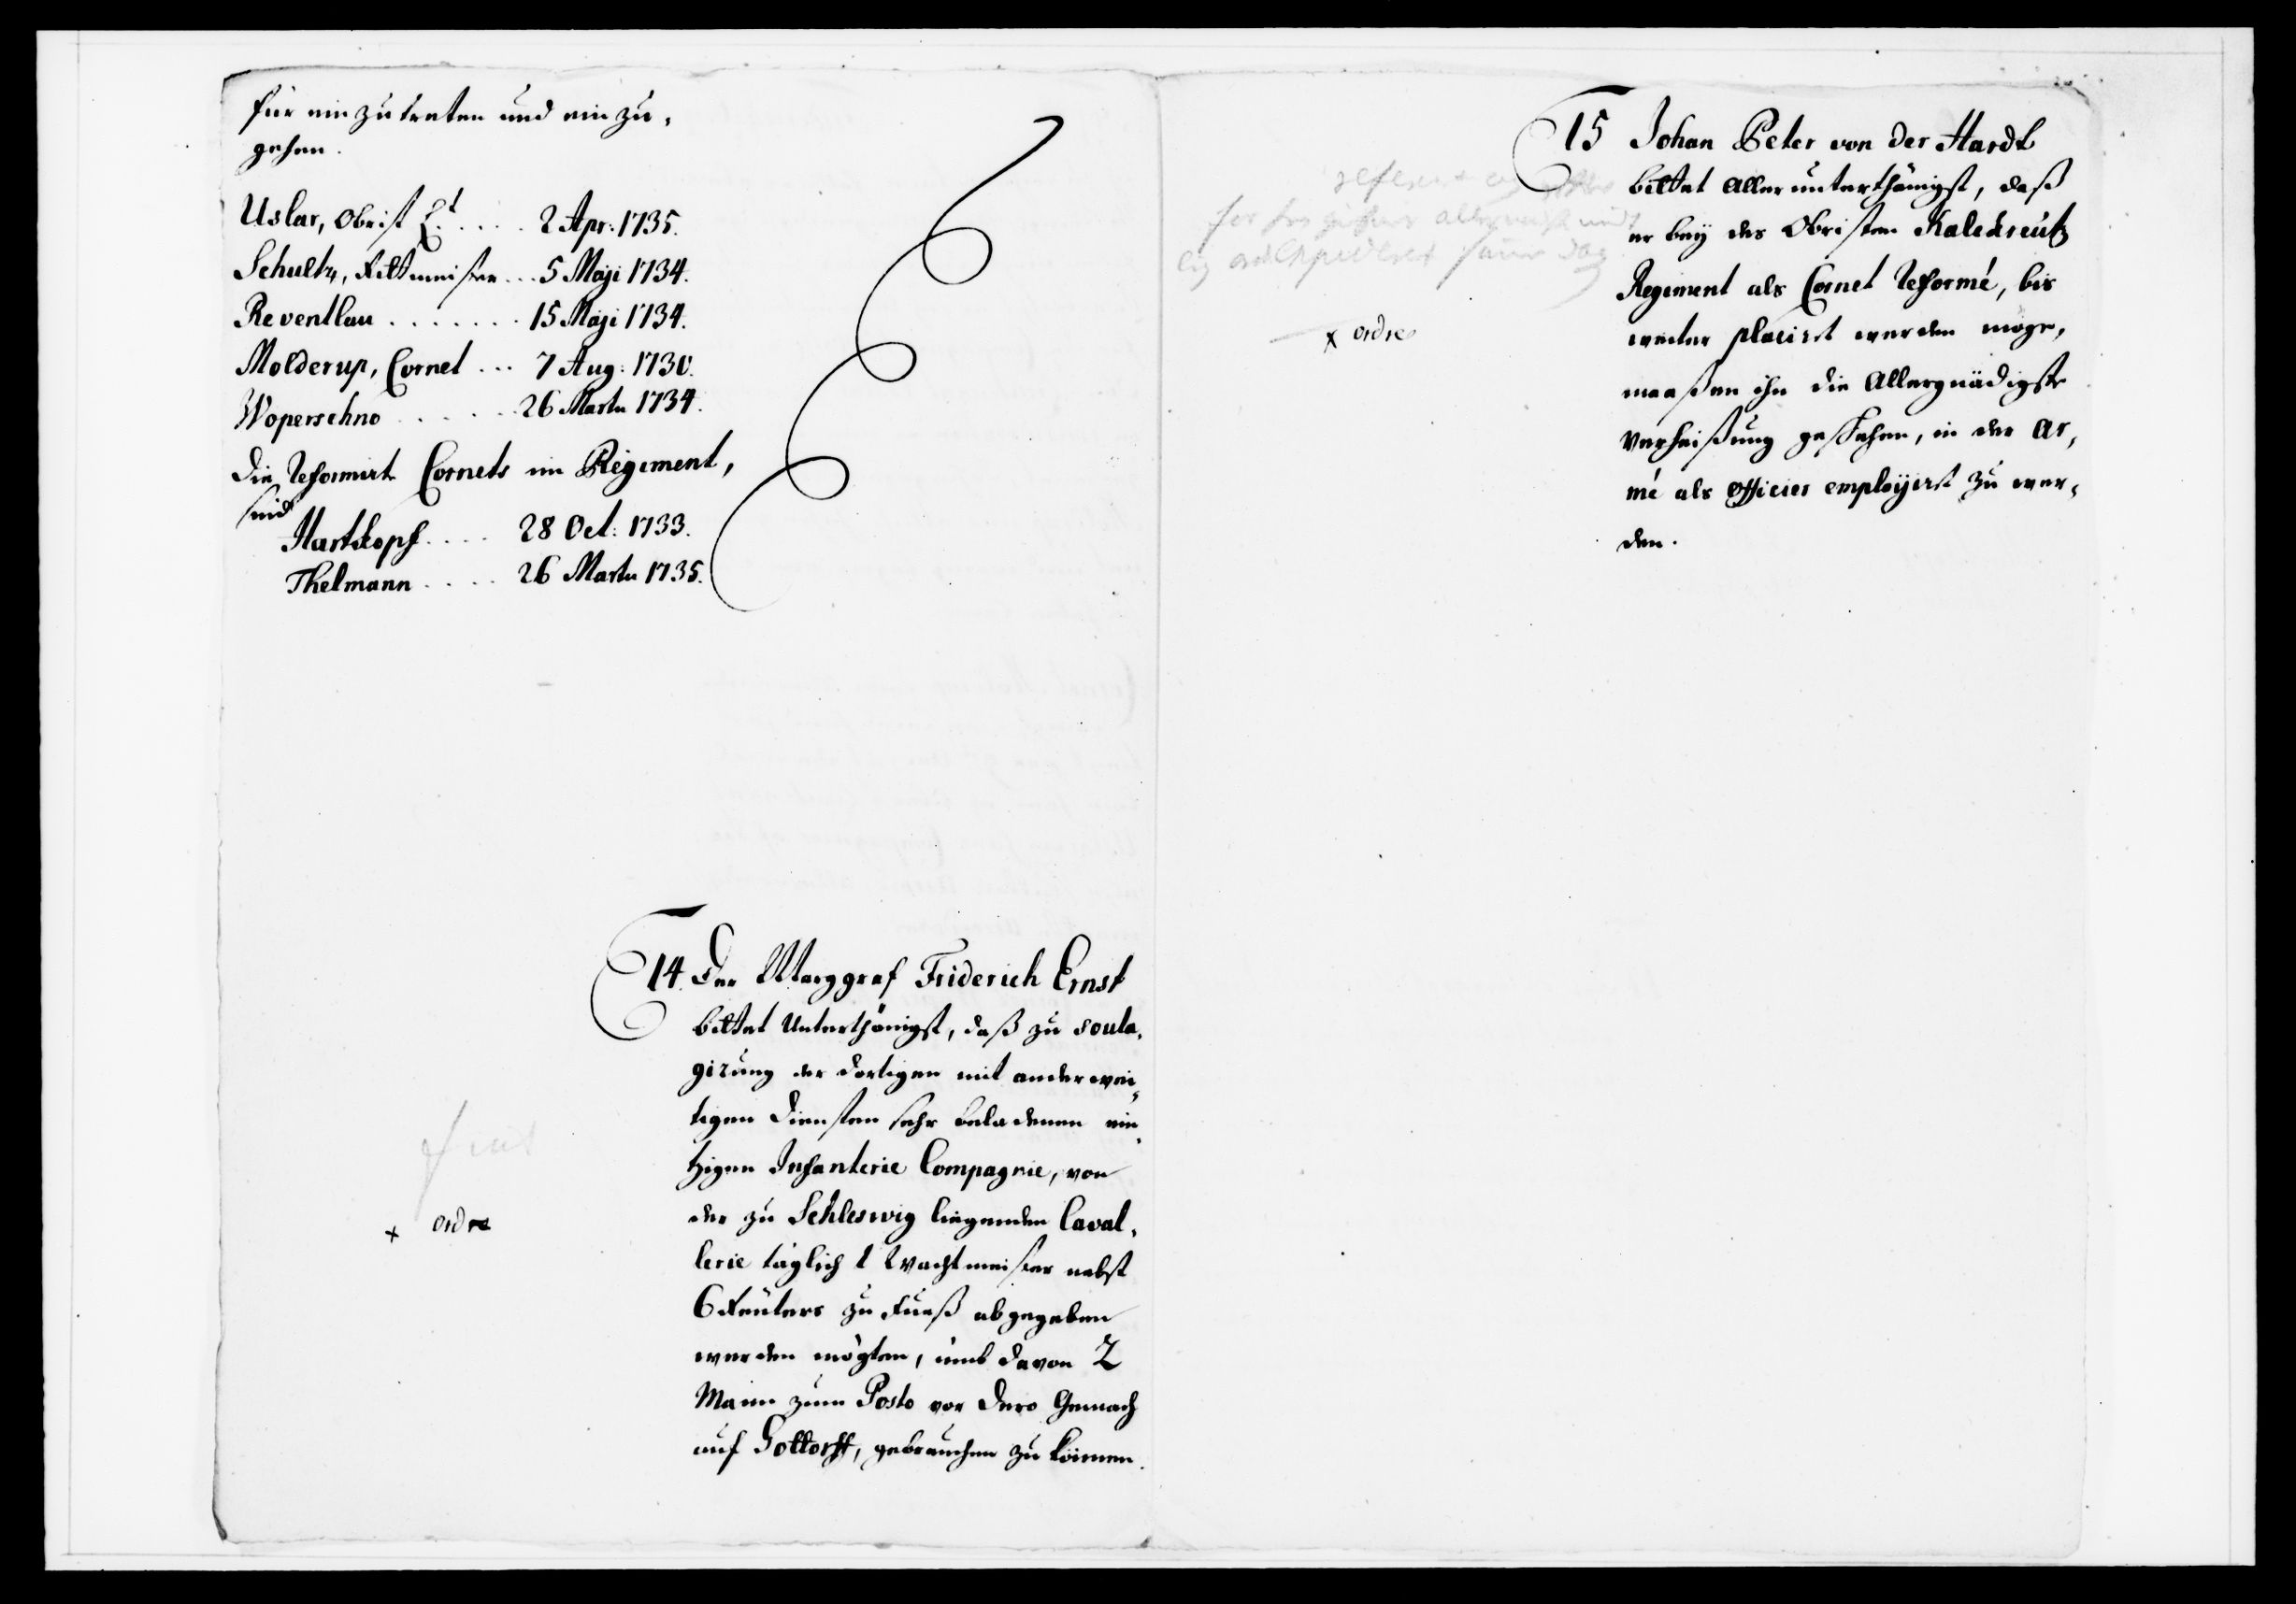 für einzutreten und einzu,
gehen.
Uslar, Obrist Lt. .... 2 Apr: 1735.
Schultz, Rittmeister... 5 Maji 1734.
Reventlau ....... 15 Maji 1734.
Molderup, Cornet ... 7 Aug: 1730.
Woperschno ..... 26 Marty 1734.
Die Reformirte Cornets im Regiment,
sind
Hartkopf .... 28 Oct: 1733.
Thelmann .... 26 Marty 1735.
14. Der Marggraf Friderich Ernst
bittet Unterthänigst, daß zu soula,
girung der dortigen mit anderwei,
tigen Diensten sehr beladenen ein,
tzigen Infanterie Compagnie, von
der zu Schleswig liegenden Caval,
lerie täglich 1 Wachtmeister nebst
6 Reüters zu Fueß abgegeben
werden mögten, umb davon 2
Mann zum Posto vor Dero Gemach
auf Gottorff, gebrauchen zu können.
fiat
x ordre
15 Johan Peter von der Hardt
bittet Allerunterthänigst, daß
er bey des Obristen Kalckreutz
Regiment als Cornet Reformé, bis
weiter placirt werden möge,
maaßen ihn die Allergnädigste
Verheißung geschehen, in der Ar,
mé als Officier employirt zu wer,
den.
x ordre